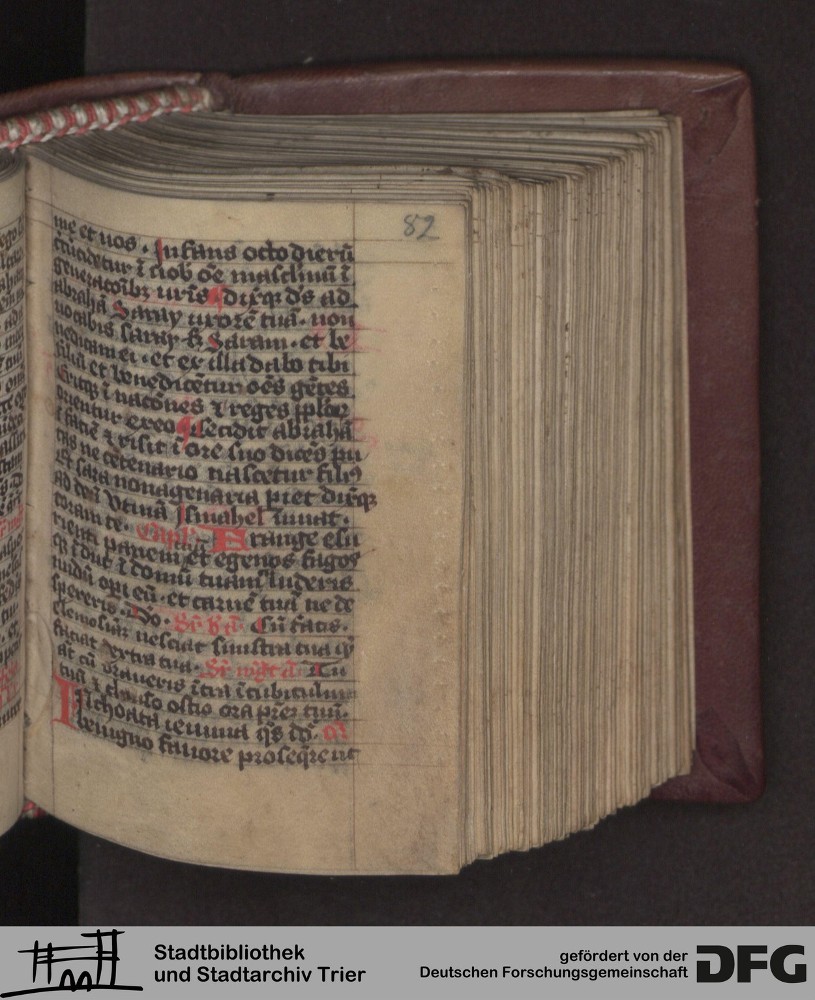 82
me et uos. Infans octo dieru
circũcidetur ĩ uob oẽ masclinũ ĩ
generatoĩbꝫ uris dixqꝫ ds ad
abrahã Saray uxorẽ tuã. non
uocabis saray sꝫ Saram. et be
nedicam ei. et ex illa dabo tibi
filiũ et benedicẽtur oẽs gẽtes
Eritqꝫ ĩ natões ⁊ reges pplor
orientur ex eo Cecidit abrahã
ĩ faciẽ ⁊ risit ĩ ore suo dicẽs pu
tas ne cetenario nascetur filiꝰ
et sara nonagenaria piet dixqꝫ
ad deũ Utinã Ismahel uiuat.
coram te. Capl Frange esu
rienti panem tuũ et egenos uagos
qꝫ ĩduc ĩ domũ tuam si uideris
nudũ opi eũ. et carnẽ tuã ne de
spexeris. Do. Cũ facis.
elemosinã nesciat sinistra tua qͥ
faciat dextra tua. Tu
at cũ oraueris ĩtra ĩ cubiculum
tuũ ⁊ clauso ostio ora prẽz tuũ.
Inchoata ieiunia qs dñ.
benigno fauore proseqre ut
Stadtbibliothek
und Stadtarchiv Trier
gefördert von der
Deutschen Forschungsgemeinschaft
DFG